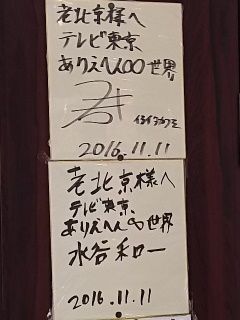 老北京様へ
テレビ東京
ありえへん∞世界
2016.11.11
老北京様へ
テレビ東京、
ありえへん∞世界
水谷和一
2016.11.11